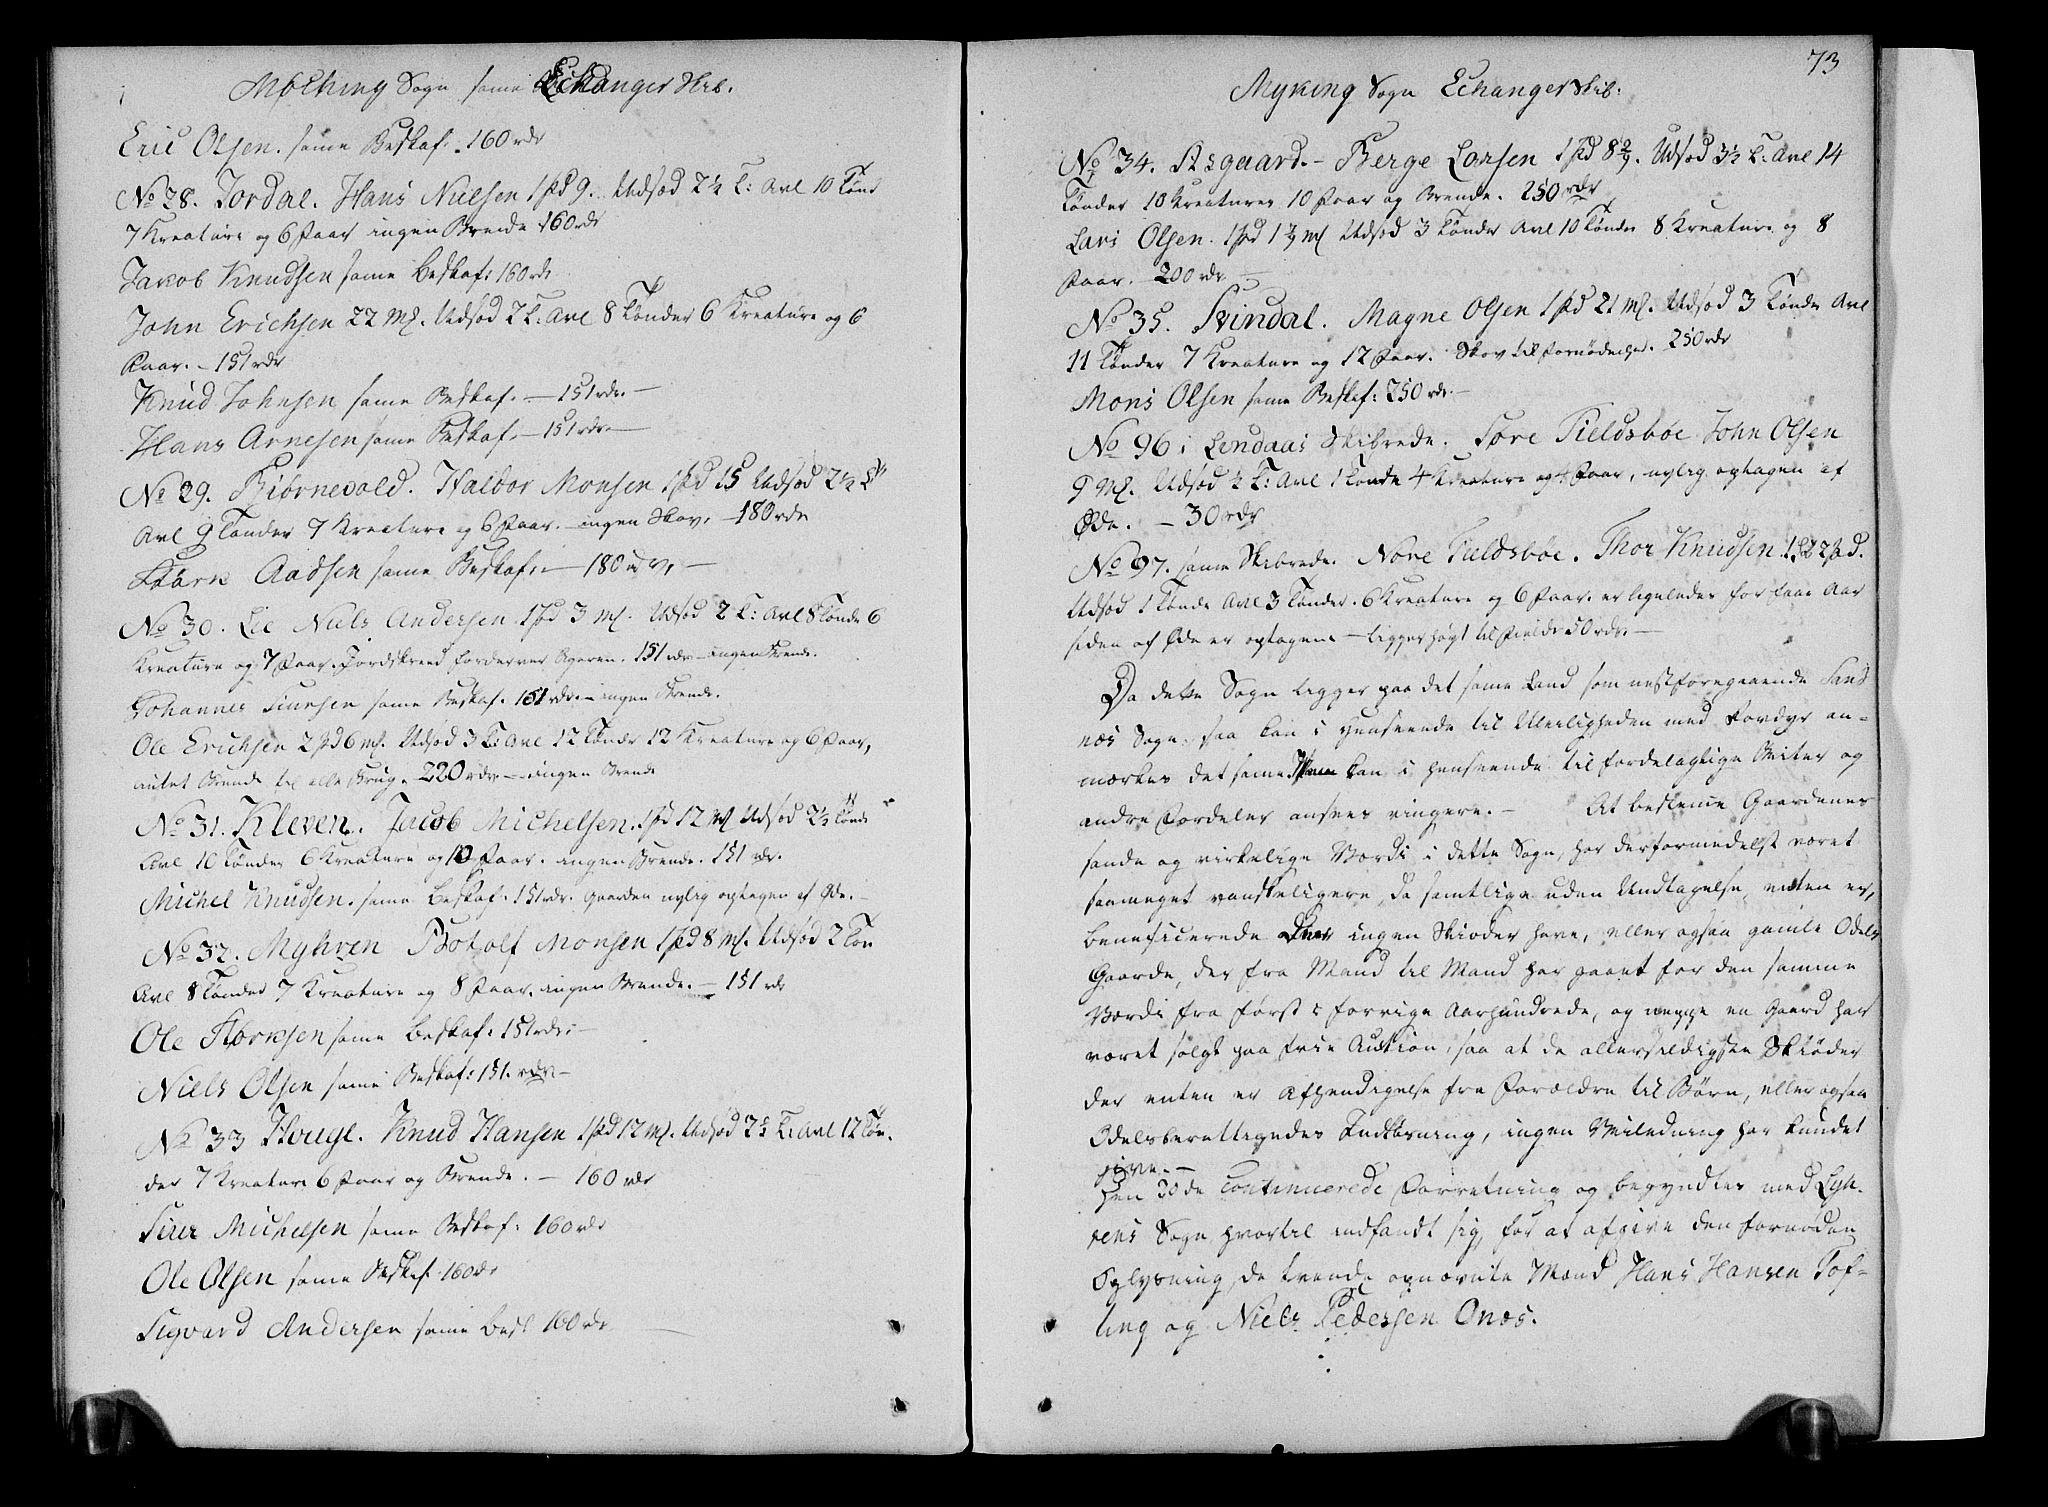 Møcking Sogn samme Echanger Skib.
Eric Olsen. samme Beskaf. 160 rdr
No 28. Jordal. Hans Nielsen 1 pd 9. Udsæd 2 1/4 T: Avl 10 Tønd
7 Kreature og 6 Faar ingen Brende 160 rdr
Jacob Knudsen samme Beskaf: 160 rdr
John Erichsen 22 Mf. Udsæd 2 T: Avl 8 Tønder 6 Kreature og 6
Faar. - 151 rdr
Knud Johnsen samme Beskaf. - 151 rdr. -
Hans Arnesen samme Beskaf. - 151 rdr. -
No 29. Biørnevold. Haldor Monsen 1 pd 15 Udsæd 2 1/2 T
Avl 9 Tønder 7 Kreature og 6 Faar. - ingen Skov. - 180 rdr
Aadsen samme Beskaf. - 180 rdr. -
No 30. Lie Niels Andersen 1 pd 3 Mf. Udsæd 2 T: Avl 8 Tønde 6
Kreature og 7 Faar. Jordskreed forderver Ageren. 151 rdr - ingen Brende.
Johannes Siursen samme Beskaf. 151 rdr. - ingen Brende.
Ole Erichsen 2 pd 6 Mf. Udsæd 3 T: Avl 12 Tønder 12 Kreature og 6 Faar,
intet Brende til alle Brug. 220 rdr - ingen Brende
No 31. Kleven. Jacob Michelsen. 1 pd 12 Mf Udsæd 2 1/2 Tønde
Avl 10 Tønder 6 Kreature og 10 Faar. ingen Brende. 151 rdr.
Michel Knudsen. samme Beskaf. 151 rdr. Gaarden nylig optagen af Øde. -
No 32. Myhren Botolf Monsen 1 pd 8 Mf. Udsæd 2 Tøn
Avl 8 Tønder 7 Kreature og 8 Faar. ingen Brende. - 151 rdr
Ole Størksen samme Beskaf: 151 rdr. -
Niels Olsen samme Beskaf: 151. rdr. -
No 33 Houge. Knud Hansen 1 pd 12 Mf. Udsæd 2 1/2 T: Avl 12 Tøn.
der 7 Kreature 6 Faar og Brende. - 160 rdr
Siur Michelsen samme Beskaf: 160 rdr
Ole Olsen samme Beskaf. 160 rdr
Sigvard Andersen samme Besk 160 rdr -
73
Myking Sogn Echanger Skib:
No 34. Asgaard. - Berge Larsen 1 pd 8 2/7. Udsæd 3 1/2 T: Avl 14
Tønder 10 Kreaturer 10 Faar og Brende. 250 rdr
Lars Olsen. 1 pd 1 Mf Udsæd 3 Tønder Avl 10 Tønder 8 Kreature og 8
Faar. - 200 rdr -
No 35. Svindal. Magne Olsen 1 pd 21 Mf. Udsæd 3 Tønder Avl
11 Tønder 7 Kreature og 12 Faar. Skov til fornødenhed. 250 rdr
Mons Olsen samme Beskaf: 250 rdr. -
No 96 i Lendaas Skibrede. Søre Fieldsbøe John Olsen
9 Mf. Udsæd 1/2 T: Avl 1 Tønde 4 Kreature og 4 Faar, nylig optagen af
Øde. - 30 rdr
No 97. samme Skibrede. Nore Fieldsbøe. Thor Knudsen
Udsæd 1 Tønde Avl 3 Tønder. 6 Kreature og 6 Faar. er ligeledes for faae Aar
siden af Øde er optagen - ligger høyt til Fields 50 rdr. -
Da dette Sogn ligger paa det samme Land som næstforegaaende Sand
næs Sogn, saa kan i Henseende til Uleiligheden med Rovdyr an-
mærkes det samme, kan i henseende til fordelagtige Beiter og
andre Fordeler ansees ringere. - At bestemme Gaardenes
sande og virkelige Værdi i dette Sogn, har derformedelst været
saameget vanskeligere, da samtlige uden Undtagelse, enten er,
beneficerede ingen Skiøder have, eller ogsaa gamle Odels
Gaarde, der fra Mand til Mand har gaaet for den samme
Værdi fra først i forrige Aarhundrede, og neppe en Gaard har
været solgt paa frie Auction, saa at de allersildigste Skiøder
der enten er Afhændigelse fra Forældre til Børn, eller ogsaa
Odelsberettigedes Indløsning, ingen Veiledning har kundet
give. -
Den 30de continuerede Forretning og begyndtes med Lyg-
rens Sogn hvortil indfandt sig, for at afgive den fornøden
Oplysning, de tvende opnævnte Mænd Hans Hansen Tof-
ting og Niels Pedersen Onæs.